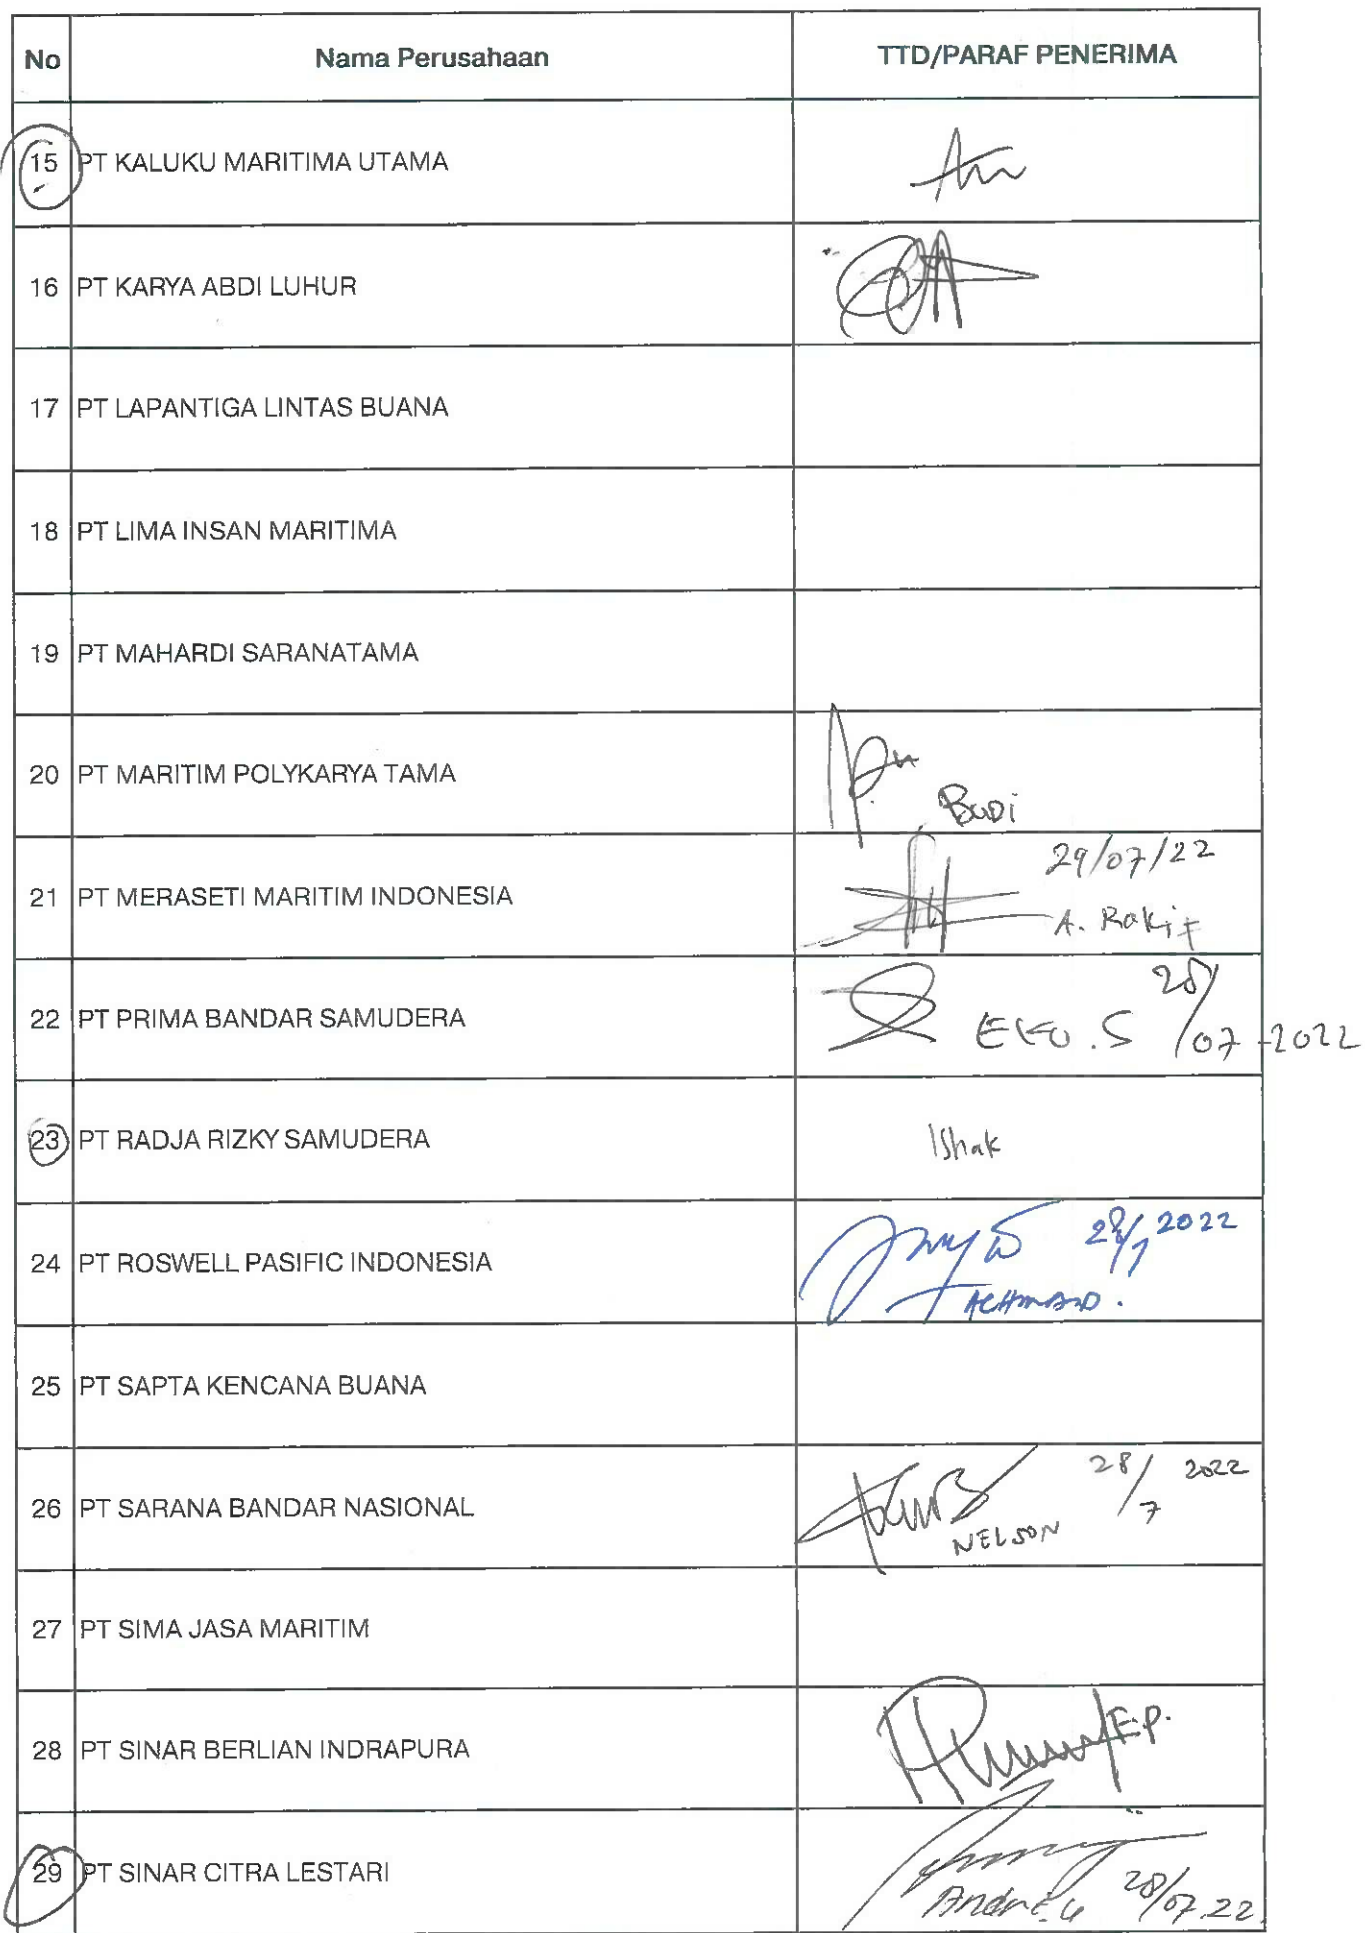 No Nama Perusahaan TTD/PARAF PENERIMA
15 PT KALUKU MARITIMA UTAMA
16 PT KARYA ABDI LUHUR
17 PT LAPANTIGA LINTAS BUANA
18 PT LIMA INSAN MARITIMA
19 PT MAHARDI SARANATAMA
20 PT MARITIM POLYKARYA TAMA BUDi
21 PT MERASETI MARITIM INDONESIA 29/07/22
A. Rakit
22 PT PRIMA BANDAR SAMUDERA EKO.S 28/07-2022
23 PT RADJA RIZKY SAMUDERA Ishak
24 PT ROSWELL PASIFIC INDONESIA 28/7 2022
ACHMAD.
25 PT SAPTA KENCANA BUANA
26 PT SARANA BANDAR NASIONAL 28/7 2022
NELSON
27 PT SIMA JASA MARITIM
28 PT SINAR BERLIAN INDRAPURA F.P.
29 PT SINAR CITRA LESTARI 28/07.22